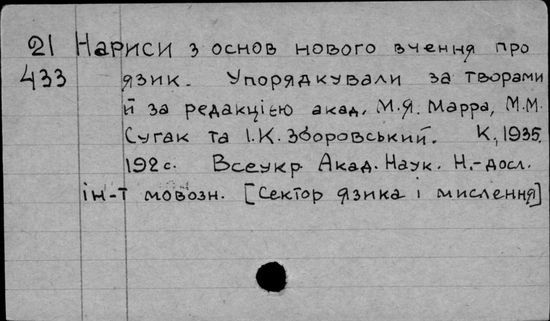 21 Нариси з основ нового вчення про
433 язик. Упорядкували за творами
й за редакцією акад. М.Я. Марра, М.М.
Сугак та І.К. Зборовський. К, 1935.
192 с. Всеукр. Акад. Наук. Н.-досл.
ін-т мовозн. [Сектор язика і мислення]